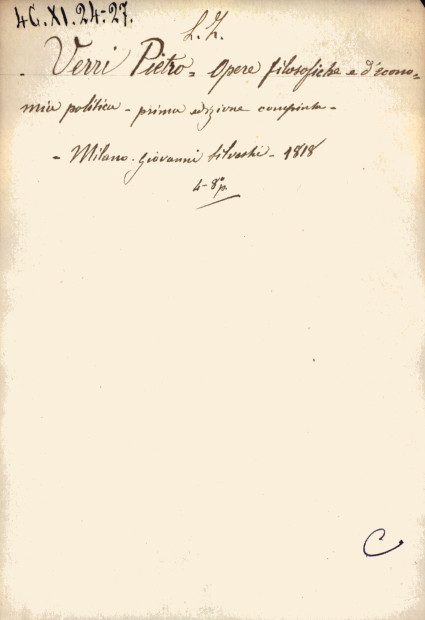 4G.XI.24-27.
L.Z.
- Verri Pietro = Opere filosofiche e d'econo=
mia politica - prima edizione compiuta -
- Milano - Giovanni Silvestri - 1818
4-8º p.
C